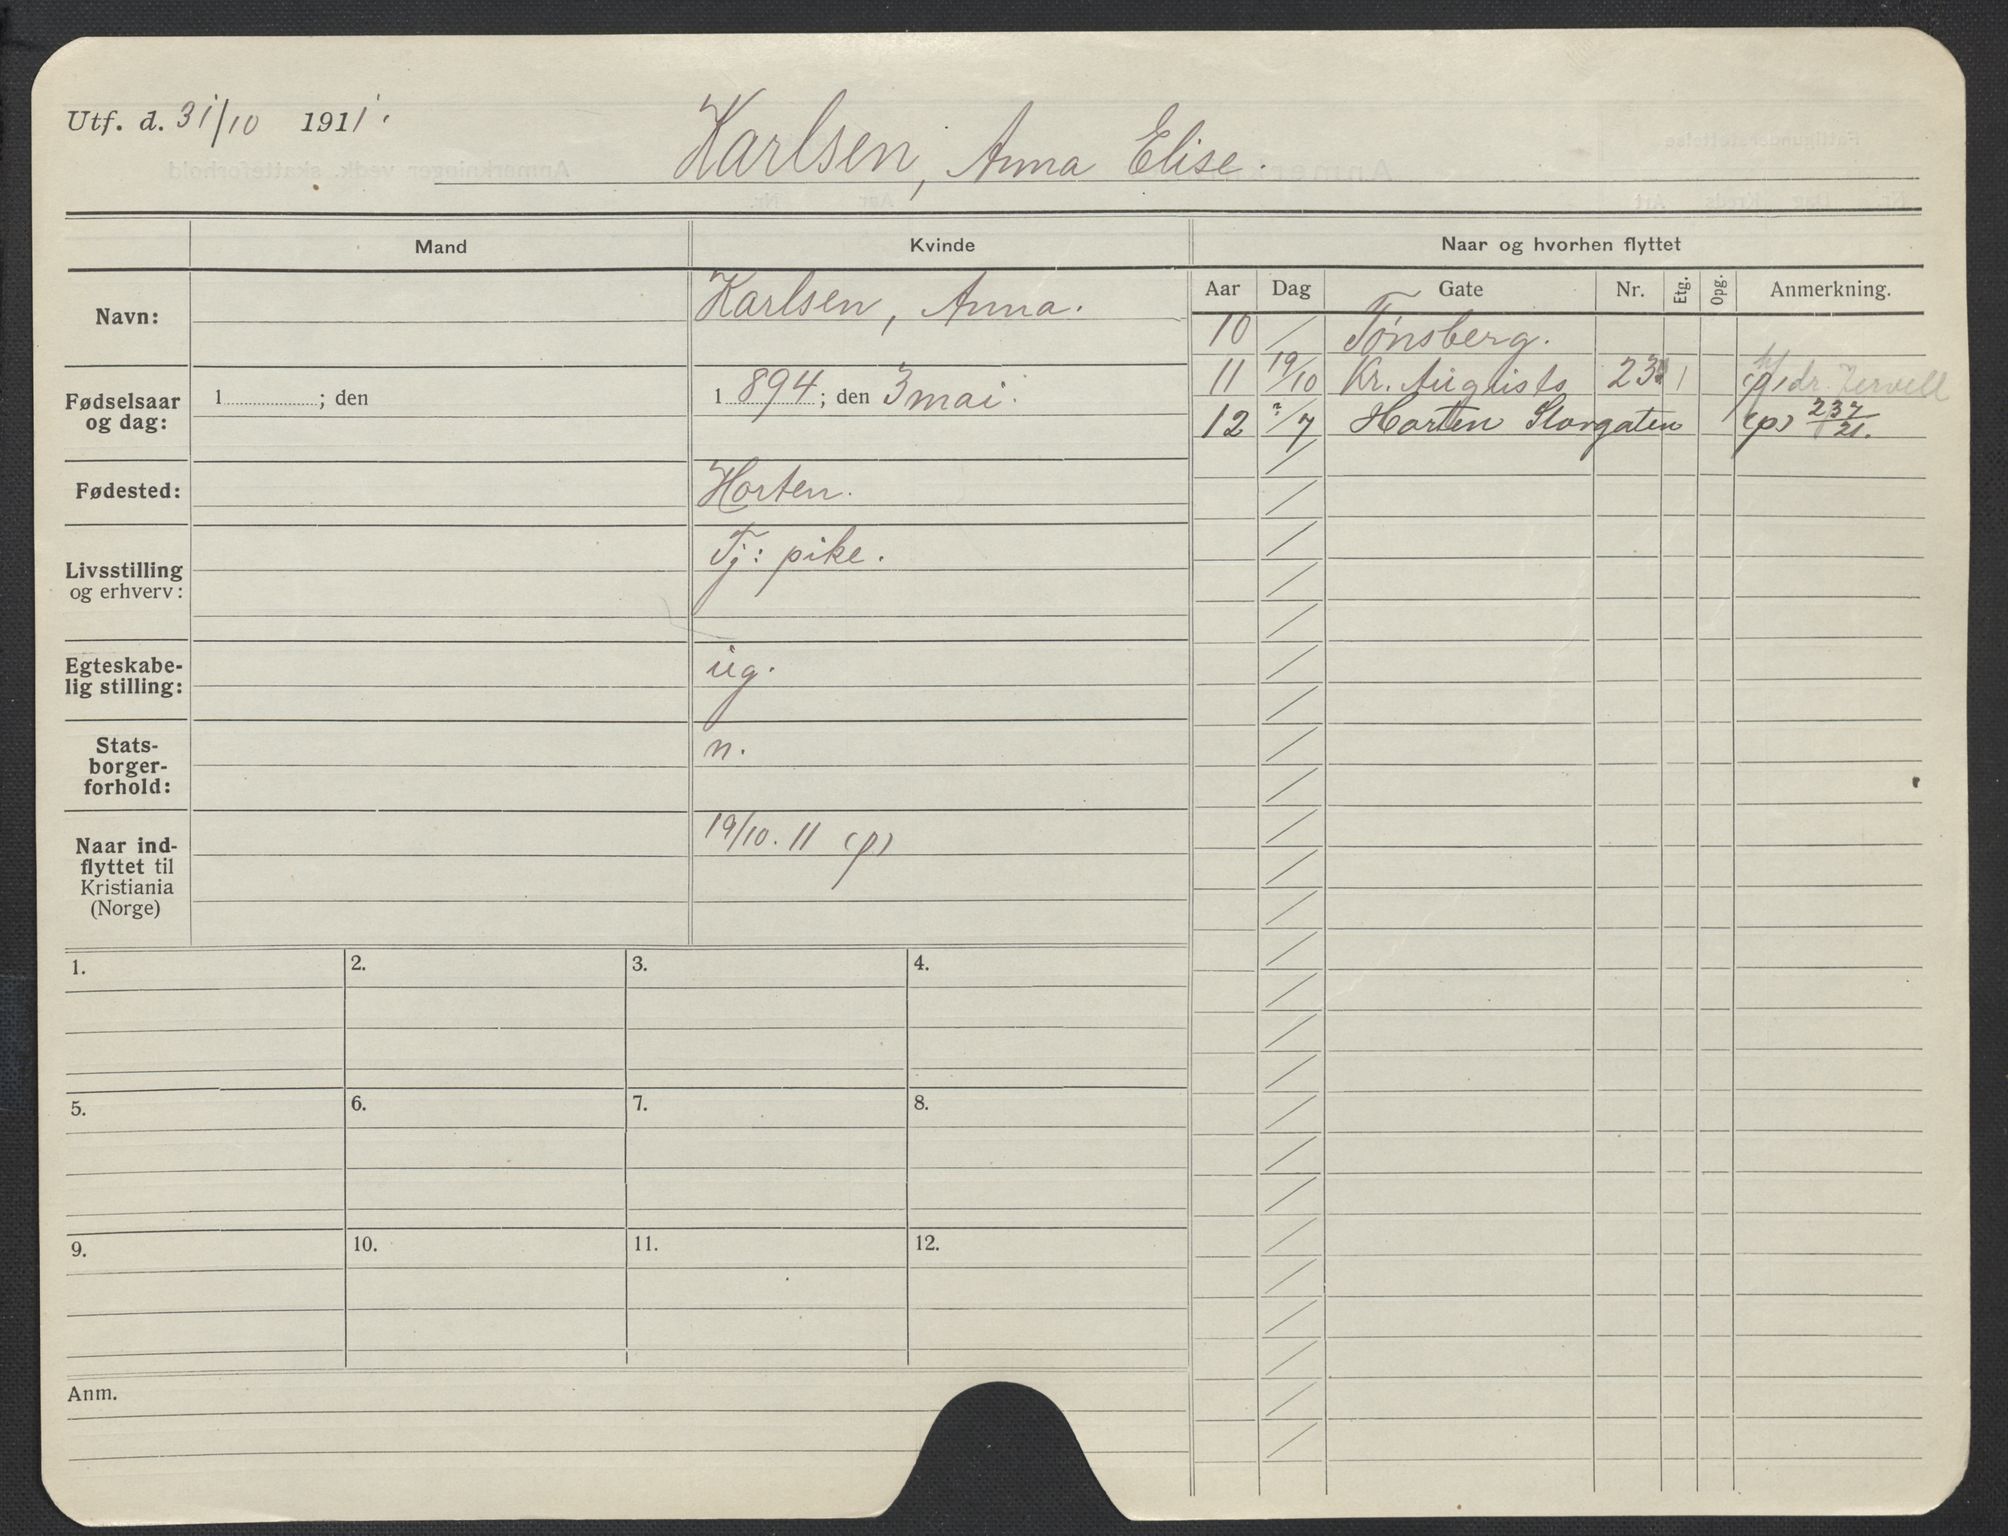 Utf. d. 31/10 1911.
Karlsen, Anna Elise.
Mand Kvinde Naar og hvorhen flyttet
Navn: Karlsen, Anna.
Fødselsaar og dag: 1 ; den 1 894; den 3 mai.
Fødested: Horten.
Livsstilling og erhverv: Tj: pike.
Egteskabe-
lig stilling: ug.
Stats-
borger-
forhold: n.
Naar ind-
flyttet til
Kristiania
(Norge) 19/10. 11 (p)
Aar Dag Gate Nr. Etg. Opg. Anmerkning.
10 / Tønsberg.
11 19/10 Kr. Augusts 23 1 (p) dr.
12 /7 Horten Storgaten (p) 237/21.
1. 2. 3. 4.
5. 6. 7. 8.
9. 10. 11. 12.
Anm.